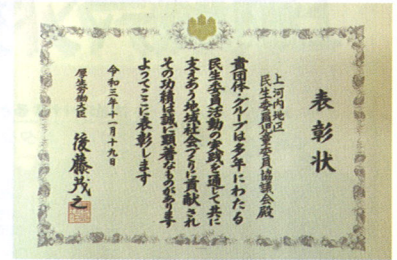 表彰状
上河内地区
民生委員児童委員協議会殿
貴団体・グループは多年にわたる
民生委員活動の実践を通じて共に
支えあう地域社会づくりに貢献され
その功績は誠に顕著なものがあります
よってここに表彰します
令和三年十一月十九日
厚生労働大臣 後藤茂之